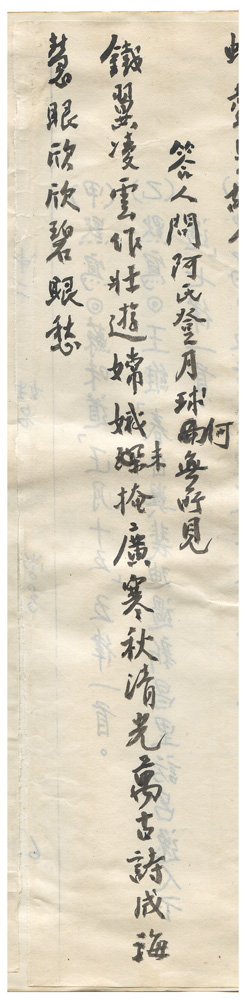 答人問阿氏登月球何無所見
鐵翼凌雲作壯遊嫦娥未掩廣寒秋清光萬古詩成海
慧眼欣欣碧眼愁